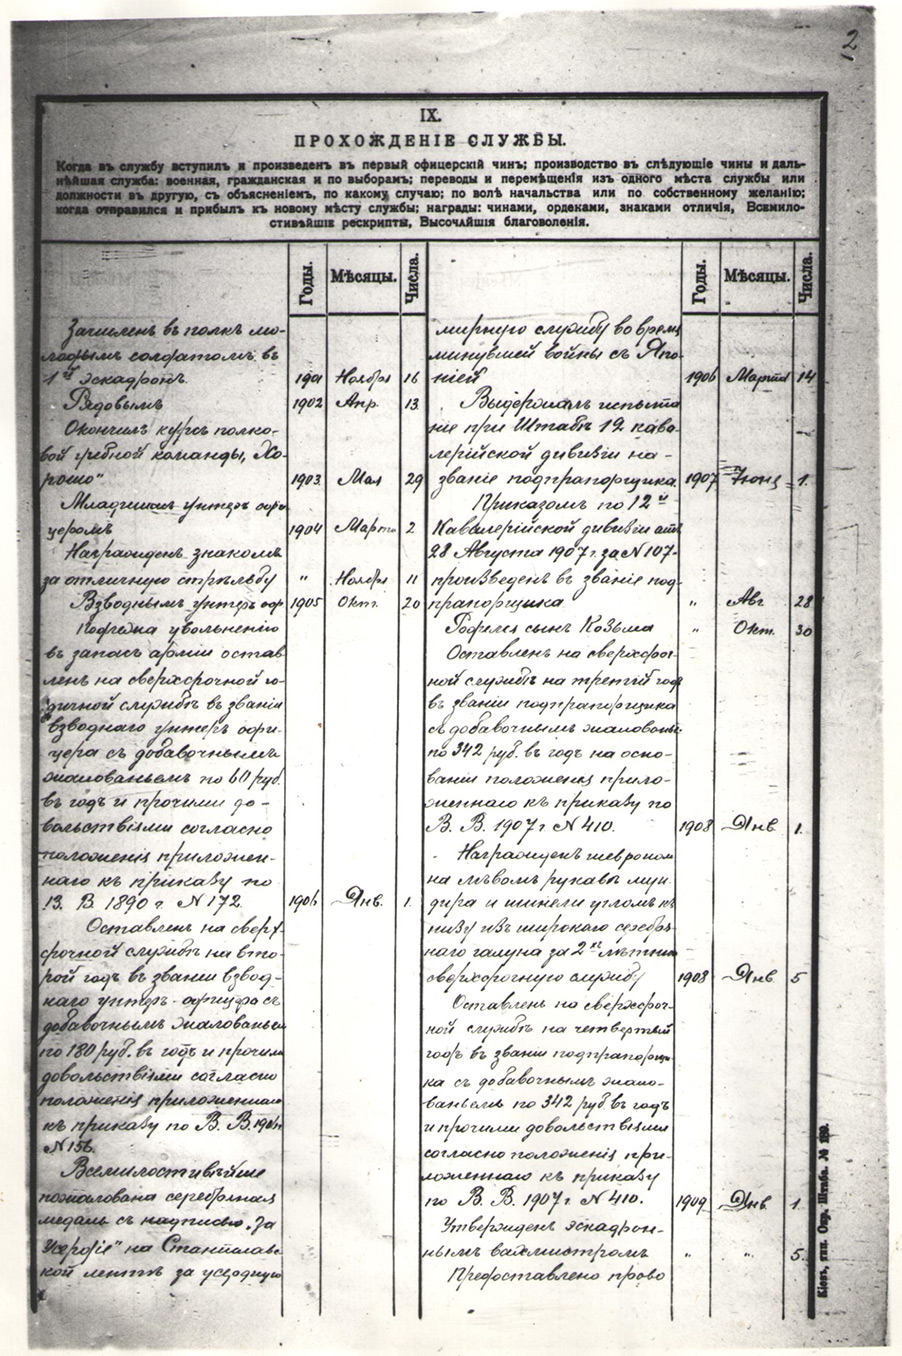 2
IX.
ПРОХОЖДЕНІЕ СЛУЖБЫ.
Когда въ службу вступилъ и произведенъ въ первый офицерскій чинъ; производство въ слѣдующіе чины и даль-
нѣйшая служба: военная, гражданская и по выборамъ; переводы и перемѣщенія изъ одного мѣста службы или
должности въ другую, съ объясненіемъ, по какому случаю; по волѣ начальства или по собственному желанію;
когда отправился и прибылъ къ новому мѣсту службы; награды: чинами, орденами, знаками отличія, Всемило-
стивѣйшіе рескрипты, Высочайшія благоволенія.
Годы. Мѣсяцы. Числа.
Зачисленъ въ полкъ мо-
лодымъ солдатомъ въ
1й эскадронъ 1901 Ноября 16
Рядовымъ 1902 Апр. 13
Окончилъ курсъ полко-
вой учебной команды, „Хо-
рошо" 1903 Мая 29
Младшимъ унтеръ офи-
церомъ 1904 Марта 2
Награжденъ знакомъ
за отличную стрѣльбу " Ноября 11
Взводнымъ унтеръ оф 1905 Окт. 20
увольненію
въ запасъ арміи остав
ленъ на сверхсрочной го-
дичной службѣ въ званіи
взводнаго унтеръ офи-
цера съ добавочнымъ
жалованьемъ по 60 руб.
въ годъ и прочими до-
вольствіями согласно
положенія приложен-
наго къ приказу по
В. В 1890 г. N 172. 1906 Янв. 1.
Оставленъ на сверх
срочной службѣ на вто-
рой годъ въ званіи взвод-
наго унтеръ-офицера съ
добавочнымъ жалованьем
по 180 руб. въ годъ и прочими
довольствіями согласно
положенія приложеннаго
къ приказу по В. В. 1906г.
N 156.
Всемилостивѣйше
пожалована серебряная
медаль съ надписью „За
Усердіе" на Станислав
ской лентѣ за усердную
Годы. Мѣсяцы. Числа.
мирную службу во время
минувшей войны съ Япо-
ніей 1906 Марта 14
Выдержалъ испыта
ніе при Штабѣ 12 кава-
лерійской дивизіи на-
званіе подпрапорщика 1907 Іюня 1.
Приказомъ по 12й
Кавалерійской дивизіи отъ
28 Августа 1907 г. за N 107-
произведенъ въ званіе под-
прапорщика " Авг 28
Родился сынъ Козьма " Окт. 30
Оставленъ на сверхсроч-
ной службѣ на третій годъ
въ званіи подпрапорщика
съ добавочнымъ жалованьем
по 342 руб. въ годъ на осно-
ваніи положенія прило-
женнаго къ приказу по
В. В. 1907 г N 410. 1908 Янв. 1.
Награжденъ шеврономъ
на лѣвомъ рукавѣ мун-
дира и шинели угломъ къ
низу изъ широкаго серебрян
наго галуна за 2хъ лѣтнюю
сверхсрочную службу 1908 Янв 5
Оставленъ на сверхсроч-
ной службѣ на четвертый
годъ въ званіи подпрапорщи-
ка съ добавочнымъ жало-
ваньемъ по 342 руб въ годъ
и прочими довольствіями
согласно положенія при-
ложеннаго къ приказу
по В. В. 1907 г N 410. 1909 Янв 1
Утвержденъ эскадрон-
нымъ вахмистромъ " " 5.
Предоставлено право
Кіевъ, тип. Окр. Штаба. №